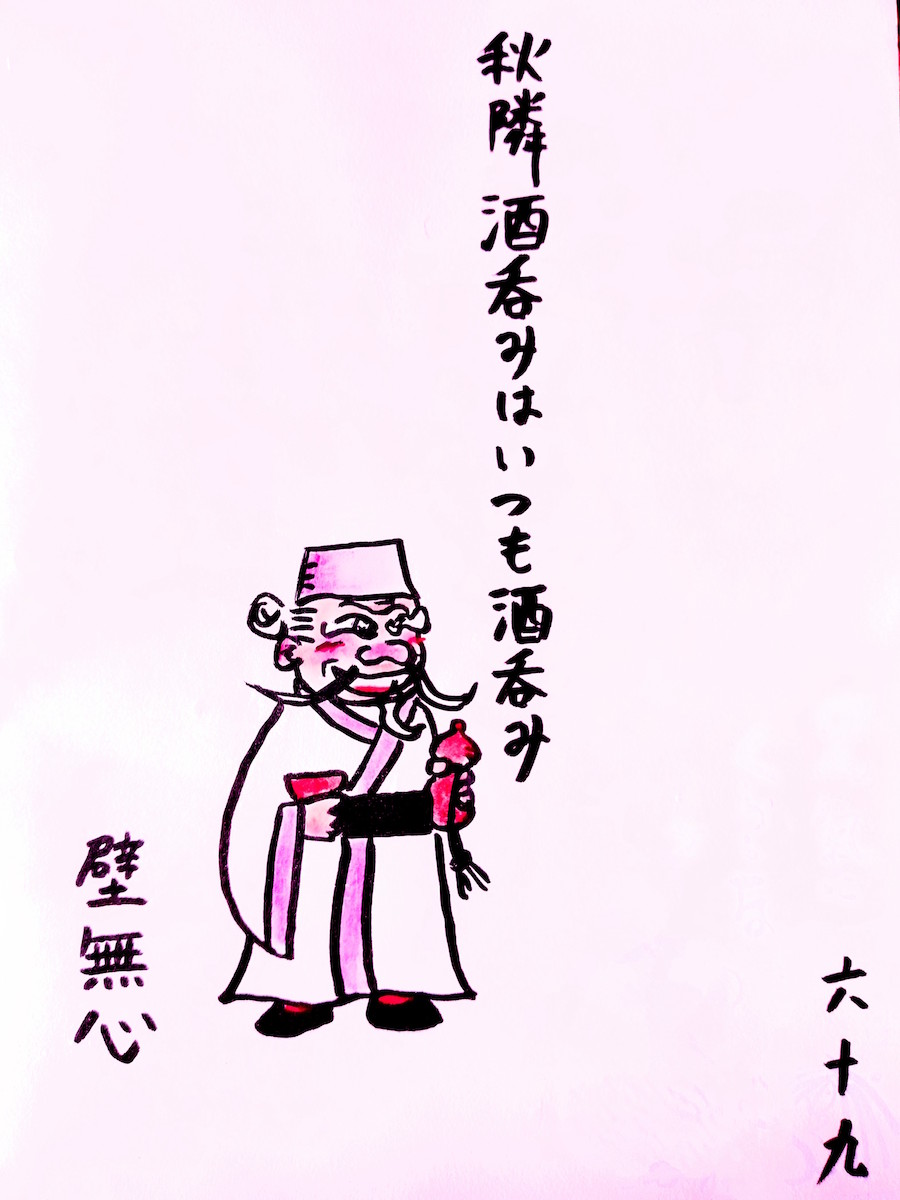 秋隣 酒呑みはいつも酒呑み
壁無心
六十九